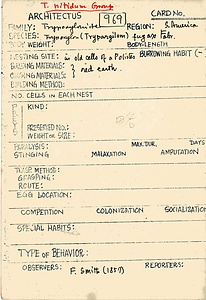 T. nitidum Group
ARCHITECTUS 969 CARD No.
FAMILY: Trypoxylonidae REGION: S. America
SPECIES: Trypoxylon (Trypargilum) fugax Fabr.
BODY WEIGHT: BODY LENGTH
NESTING SITE: in old cells of a Polistes BURROWING HABIT (-
SEALING MATERIALS: } red earth.
CLOSING MATERIALS:
BUILDING METHOD:
NO. CELLS IN EACH NEST
KIND:
PRESERVED NO.:
WEIGHT OR SIZE:
PARALYSIS: MAX. DUR. DAYS
STINGING MALAXATION AMPUTATION
TRASP. METHOD:
GRASPING:
ROUTE:
EGG LOCATION:
COMPETITION COLONIZATION SOCIALIZATION
SPECIAL HABITS:
TYPE OF BEHAVIOR:
OBSERVERS: F. Smith (1857) REPORTERS: